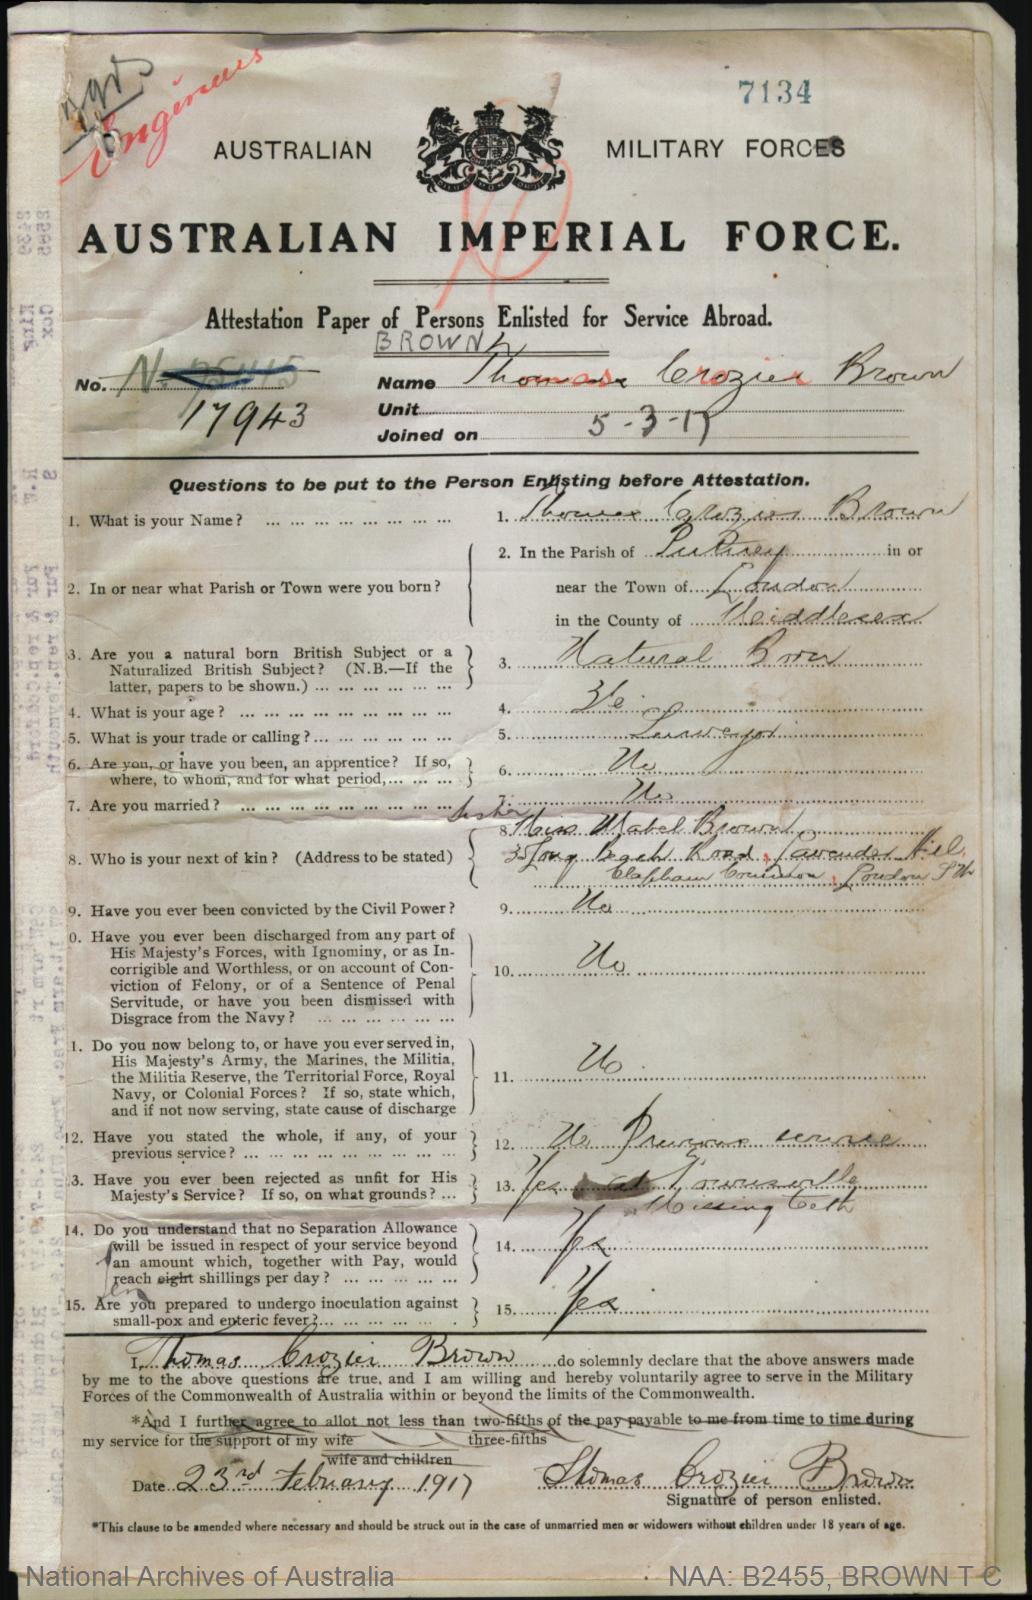 Engineers
7134
AUSTRALIAN MILITARY FORCES
AUSTRALIAN IMPERIAL FORCE.
Attestation Paper of Persons Enlisted for Service Abroad.
BROWN
No. N. 17943
Name Thomas Crozier Brown
Unit
Joined on 5-3-17
Questions to be put to the Person Enlisting before Attestation.
1. What is your Name? ... 1. Thomas Crozier Brown
2. In or near what Parish or Town were you born? 2. In the Parish of Putney in or
near the Town of London
in the County of Middlesex
3. Are you a natural born British Subject or a
Naturalized British Subject? (N.B.—If the
latter, papers to be shown.) ... 3. Natural Born
4. What is your age? ... 4.
5. What is your trade or calling? ... 5. Surveyor
6. Are you, or have you been, an apprentice? If so,
where, to whom, and for what period, ... 6. No
7. Are you married? ... 7. No
sister
8. Who is your next of kin? (Address to be stated) 8. Miss Mabel Brown
Long Beach Road, Lavender Hill,
Clapham Common, London S.W.
9. Have you ever been convicted by the Civil Power? 9. No
0. Have you ever been discharged from any part of
His Majesty's Forces, with Ignominy, or as In-
corrigible and Worthless, or on account of Con-
viction of Felony, or of a Sentence of Penal
Servitude, or have you been dismissed with
Disgrace from the Navy? ... 10. No
1. Do you now belong to, or have you ever served in,
His Majesty's Army, the Marines, the Militia,
the Militia Reserve, the Territorial Force, Royal
Navy, or Colonial Forces? If so, state which,
and if not now serving, state cause of discharge 11. No
12. Have you stated the whole, if any, of your
previous service? ... 12. No Previous service
3. Have you ever been rejected as unfit for His
Majesty's Service? If so, on what grounds? ... 13. Yes at Townsville
Missing Teeth
14. Do you understand that no Separation Allowance
will be issued in respect of your service beyond
an amount which, together with Pay, would
reach eight shillings per day? ... 14. Yes
ten
15. Are you prepared to undergo inoculation against
small-pox and enteric fever? ... 15. Yes
I, Thomas Crozier Brown do solemnly declare that the above answers made
by me to the above questions are true, and I am willing and hereby voluntarily agree to serve in the Military
Forces of the Commonwealth of Australia within or beyond the limits of the Commonwealth.
*And I further agree to allot not less than two-fifths of the pay payable to me from time to time during
my service for the support of my wife three-fifths
wife and children
Date 23rd February 1917 Thomas Crozier Brown
Signature of person enlisted.
*This clause to be amended where necessary and should be struck out in the case of unmarried men or widowers without children under 18 years of age.
National Archives of Australia NAA: B2455, BROWN T C